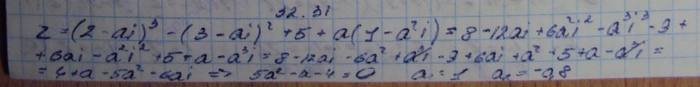 32.31
z = (2 - ai)³ - (3 - ai)² + 5 + a(1 - a²i) = 8 - 12ai + 6a²i² - a³i³ - 9 +
+ 6ai - a²i² + 5 + a - a³i = 8 - 12ai - 6a² + a³i - 9 + 6ai + a² + 5 + a - a³i =
= 4 + a - 5a² - 6ai => 5a² - a - 4 = 0 a₁ = 1 a₂ = -0,8